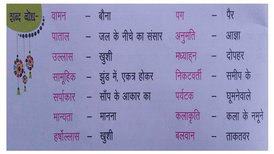 शब्द बोध-
वामन – बौना पग – पैर
पाताल – जल के नीचे का संसार अनुमति – आज्ञा
उल्लास – खुशी मध्याह्न – दोपहर
सामूहिक – झुंड में, एकत्र होकर निकटवर्ती – समीप के
सर्पाकार – साँप के आकार का पर्यटक – घूमनेवाले
मान्यता – मानना कलाकृति – कला के नमूने
हर्षोल्लास – खुशी बलवान – ताकतवर